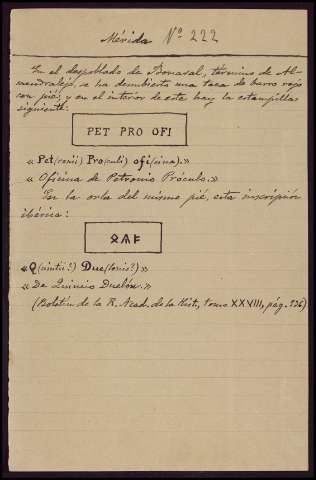 Mérida Nº 222
En el despoblado de Bonaval, término de Al-
mendralejo, se ha descubierto una taza de barro rojo
con pié; y en el interior de este hay la estampilla
siguiente:
PET PRO OFI
« Pet(ronii) Pro(culi) ofi(cina). »
« Oficina de Petronio Próculo. »
En la orla del mismo pié, esta inscripción
ibérica:
« Q(uintii?) Due(lonis?) »
« De Quincio Duelón. »
(Boletín de la R. Acad. de la Hist, tomo XXVIII, pág. 536)